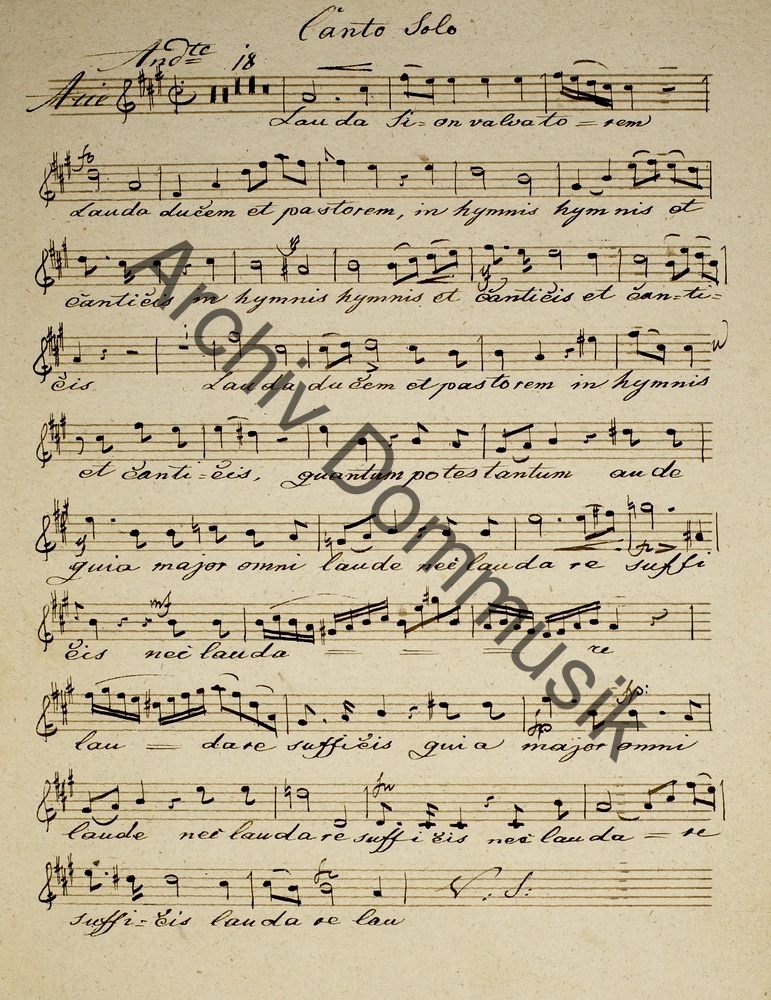 Canto Solo
Andte 18
Lauda Si=on valvato=rem
fo
Lauda ducem et pastorem, in hymnis hymnis et
canticis in hymnis hymnis et canticis et can=ti=
cis Lauda ducem et pastorem in hymnis
et canti=cis, quantum potes tantum aude
quia major omni laude nec lauda re suffi
mf
cis nec lauda = = = re
fp:
lau = dare sufficis quia major omni
laude nec lauda re sufficis nec lauda = re
suffi=cis lauda re lau V: S:
Archiv Dommusik